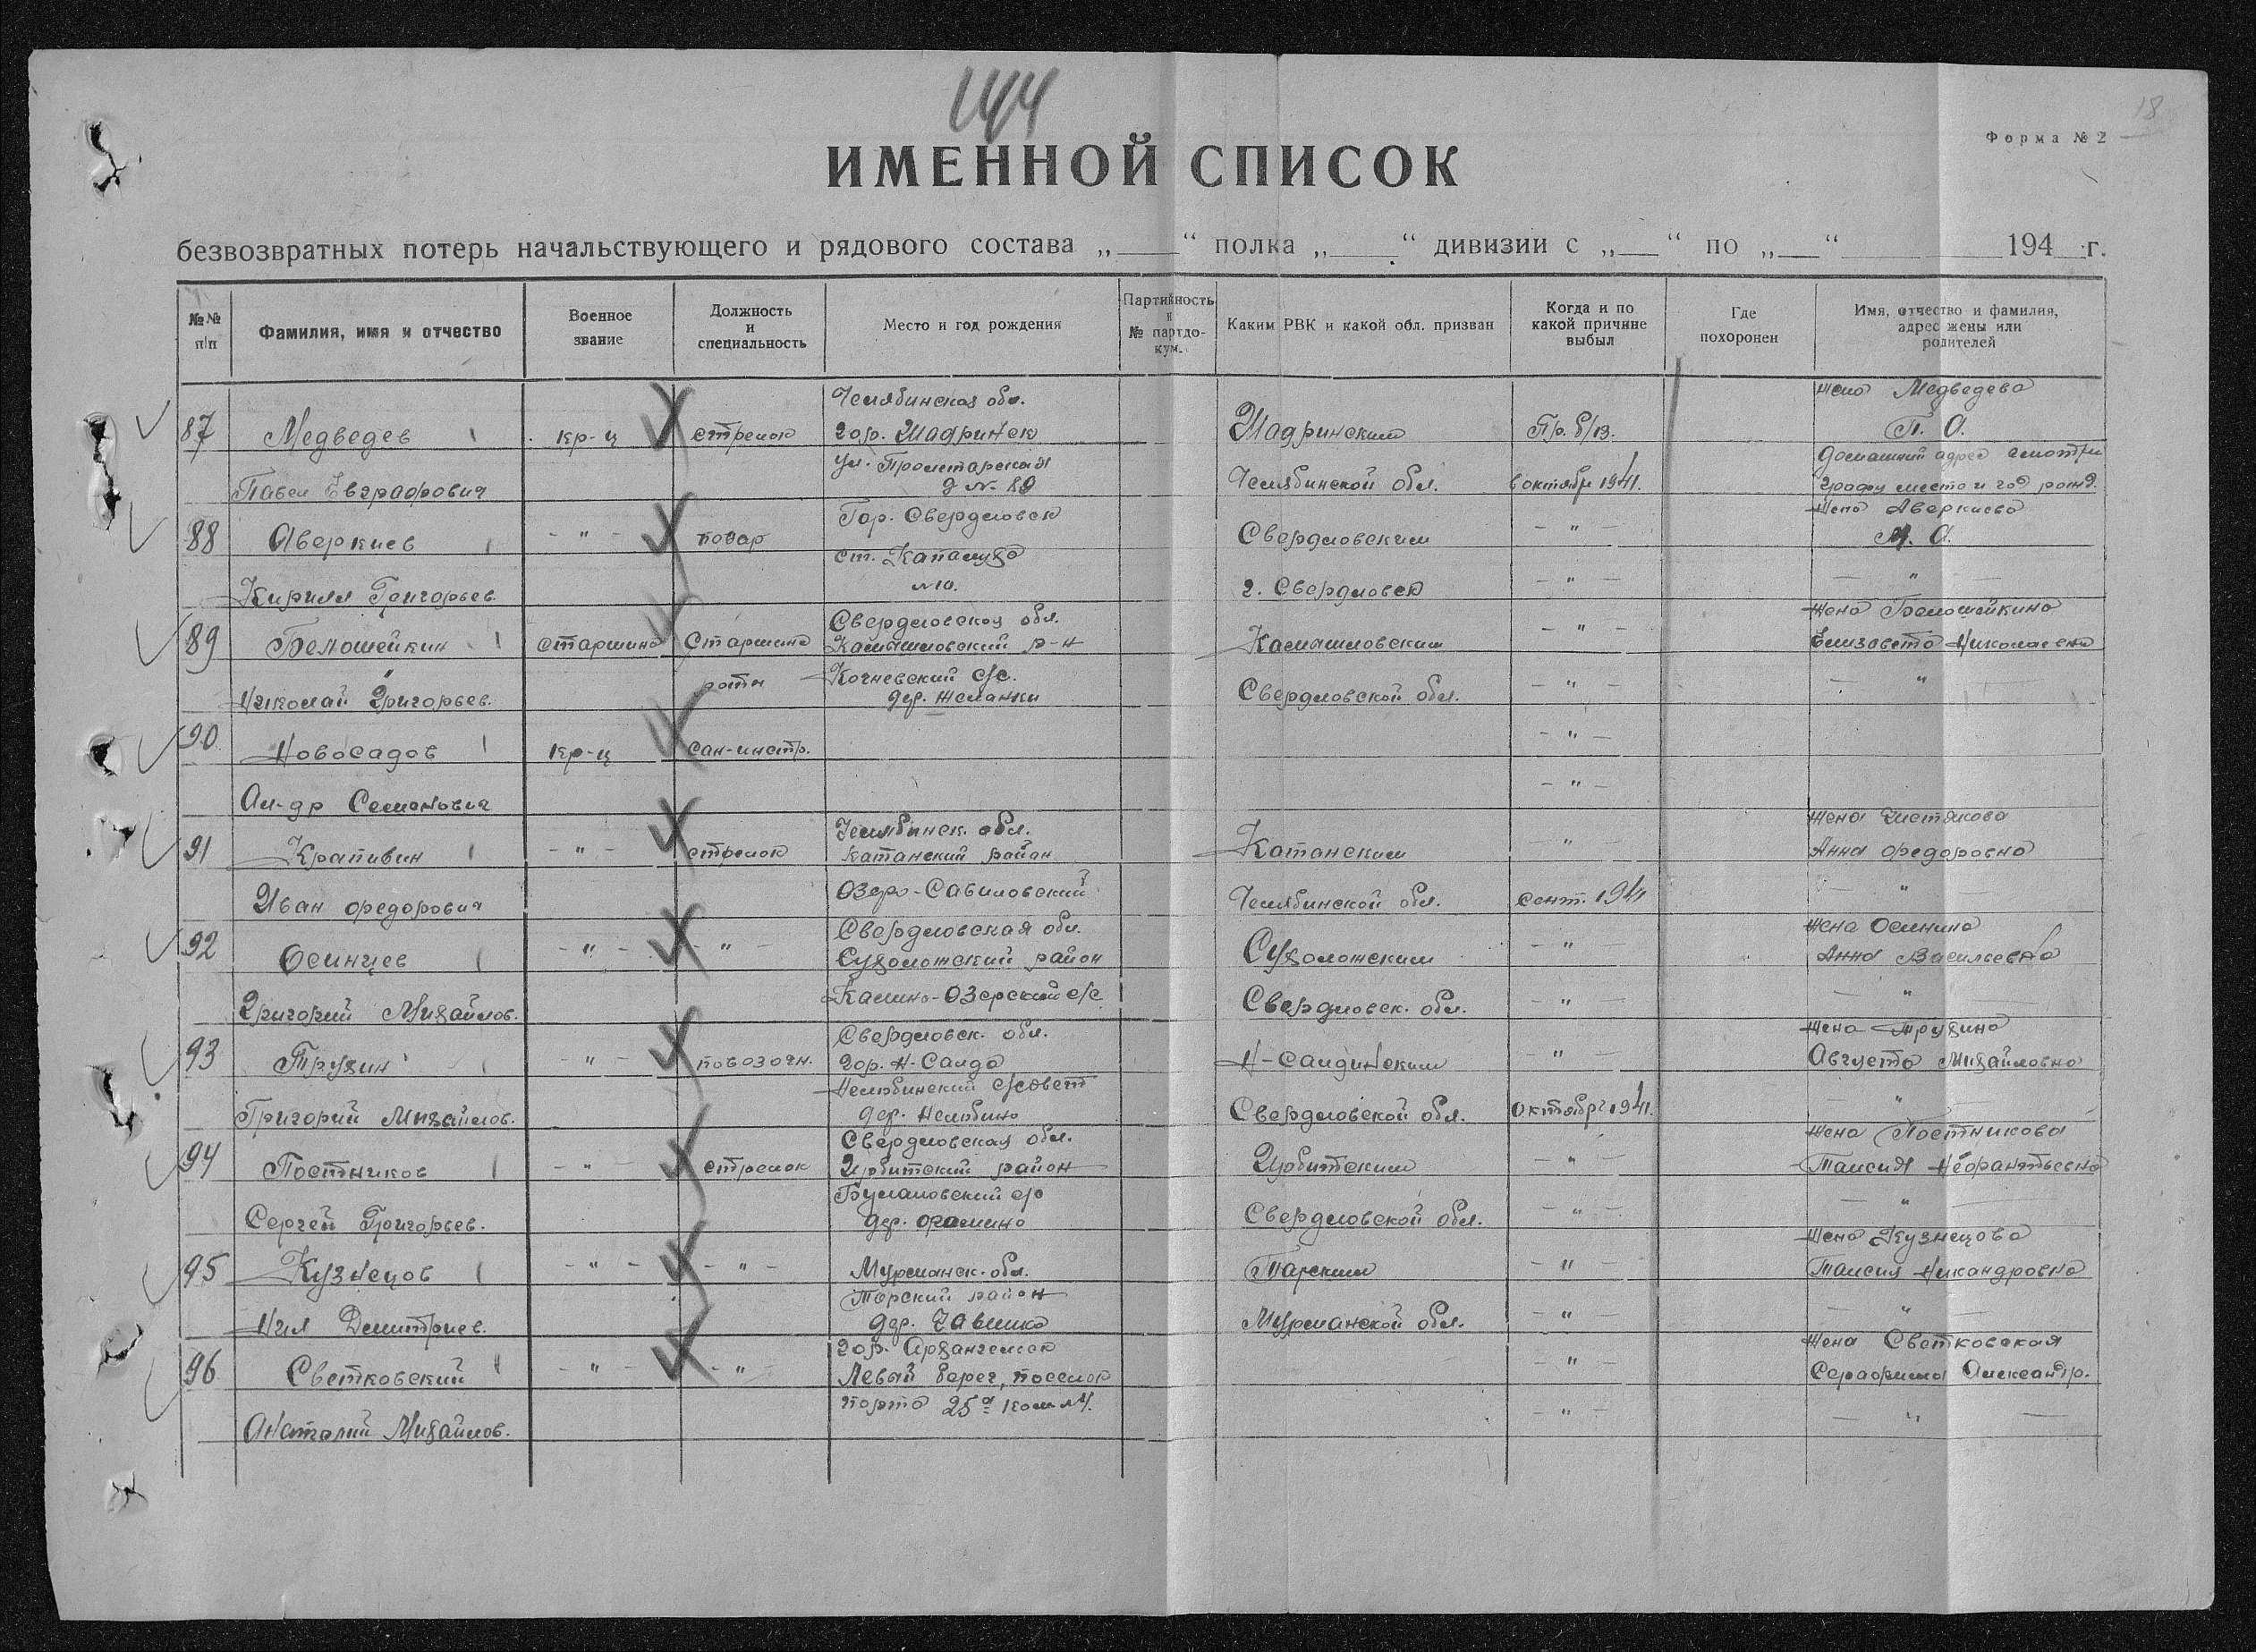 144
18
Форма № 2
ИМЕННОЙ СПИСОК
безвозвратных потерь начальствующего и рядового состава „ “ полка „ “ дивизии с „ “ по „ “ 194 г.
№№ п/п
Фамилия, имя и отчество
Военное звание
Должность и специальность
Место и год рождения
Партийность и № партдокум.
Каким РВК и какой обл. призван
Когда и по какой причине выбыл
Где похоронен
Имя, отчество и фамилия, адрес жены или родителей
87 Медведев Павел Евграфович
кр-ц
стрелок
Челябинская обл.
гор. Шадринск
ул. Пролетарская
д № 89
Шадринским
Челябинской обл.
Пр. б/в.
в октябре 1941.
Жена Медведева
П. А.
домашний адрес смотри
графу место и год рожд.
88 Аверкиев Кирилл Григорьев.
- " -
повар
Гор. Свердловск
ст.
Свердловским
г. Свердловск
- " -
- " -
Жена Аверкиева
М. А.
- " -
89 Белошейкин Николай Григорьев.
старшина
Старшина роты
Свердловская обл.
Камышловский р-н
Кочневский с/с.
дер. Желанки
Камышловским
Свердловской обл.
- " -
- " -
Жена Белошейкина
Елизавета Николаевна
- " -
90 Новосадов Ал-др Семенович
кр-ц
сан-инстр.
- " -
- " -
91 Крапивин Иван Федорович
- " -
стрелок
Челябинск. обл.
Катайский район
Озеро-Савиловский
Катайским
Челябинской обл.
- " -
Сент. 1941
Жена Чистякова
Анна Федоровна
- " -
92 Осинцев Григорий Михайлов.
- " -
- " -
Свердловская обл.
Сухоложский район
Камыш-Озерский с/с
Сухоложским
Свердловск. обл.
- " -
- " -
Жена
Анна Васильевна
- " -
93 Трухин Григорий Михайлов.
- " -
повозочн.
Свердловск. обл.
гор. Н-Салда
Нелюбинский с/совет
дер. Нелюбино
Н-Салдинским
Свердловской обл.
- " -
Октябрь 1941.
Жена Трухина
Августа Михайловна
- " -
94 Постников Сергей Григорьев.
- " -
стрелок
Свердловская обл.
Ирбитский район
с/с
дер. Фомина
Ирбитским
Свердловской обл.
- " -
- " -
Жена Постникова
Таисия
- " -
95 Кузнецов Нил Дмитриев.
- " -
- " -
Мурманск. обл.
Терский район
дер. Чавынка
Терским
Мурманской обл.
- " -
- " -
Жена Кузнецова
Таисия Никандровна
- " -
96 Светковский Анатолий Михайлов.
- " -
- " -
гор. Архангельск
Левый берег, поселок
порта 25ᵃ ком
- " -
- " -
Жена Светковская
Серафима Александр.
- " -